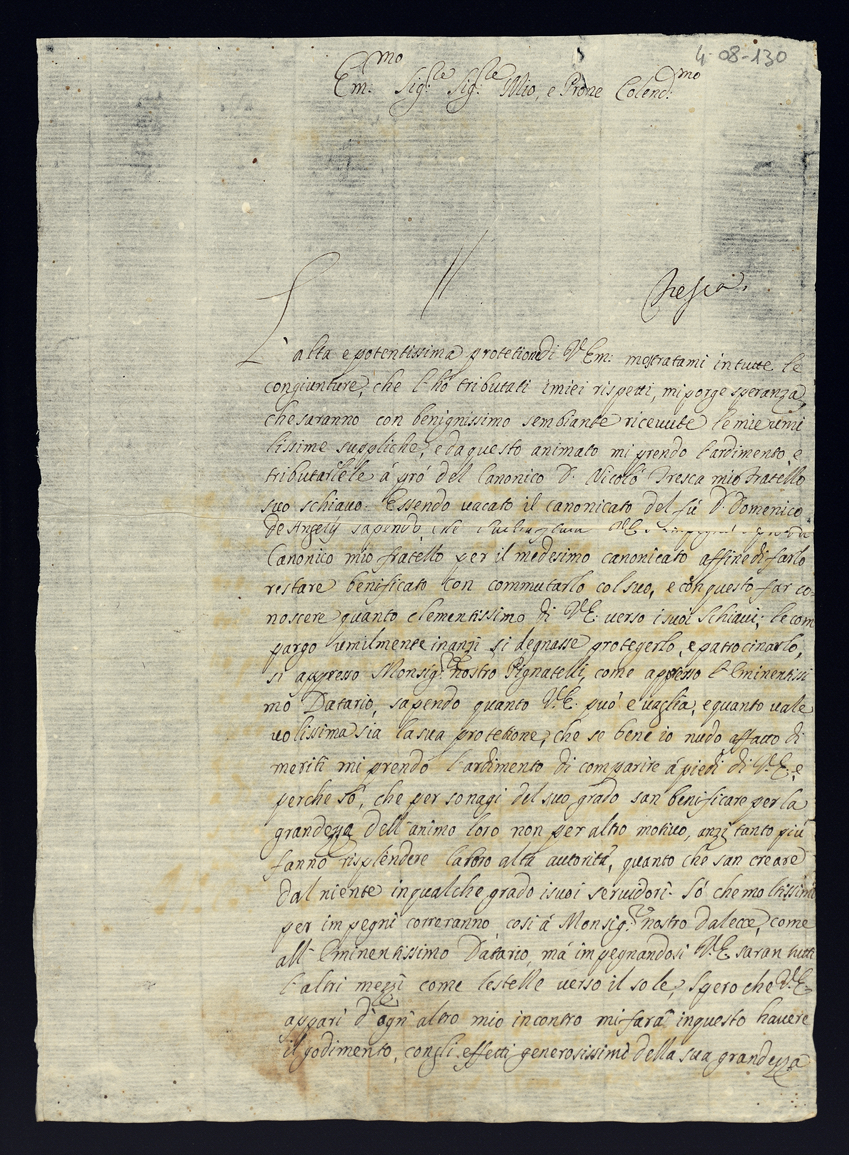 4-08-130
Em.mo Sig.re Sig.re Mio, e Prone Colend.mo
Tresca.
L'alta e potentissima protetione di V.Em: mostratami in tutte le
congiunture, che l'hò tributati i miei rispetti, mi porge speranza,
che saranno con benignissimo sembiante ricevute le mie umi
lissime suppliche, e da questo animato mi prendo l'ardimento è
tributarlele á pró del Canonico D. Nicolò Tresca mio fratello
suo schiavo. Essendo vacato il canonicato del fú D. Domenico
de Angelis sapendo che V.E.
Canonico mio fratello per il medesimo canonicato affine di farlo
restare benificato con commutarlo col suo, e con questo far co-
noscere quanto clementissimo di V.E. verso i suoi schiavi; le com
pargo umilmente inanzi si degnasse protegerlo, e patrocinarlo,
sì appresso Monsig.r nostro Pignatelli, come appresso l'Eminentissi
mo Datario, sapendo quanto V.E. può e vaglia, e quanto vale
volissima sia la sua protetione, che se bene io nudo affatto di
meriti mi prendo l'ardimento di comparire á piedi di V.E. è
perche só, che personagi del suo grado san benificare per la
grandezza dell'animo loro non per altro motivo, anzi tanto più
fanno risplendere la loro alta autorità, quanto che san creare
dal niente in qualche grado i suoi servidori. Só che moltissimi
per impegni correranno così á Monsig.r nostro da lecce, come
all'Eminentissimo Datario, má impegnandosi V.E. saran tutti
l'altri mezzi come le stelle verso il sole, spero che V.E.
appari d'ogn'altro mio incontro mi fará in questo havere
il godimento, con gli effetti generosissimi della sua grandezza